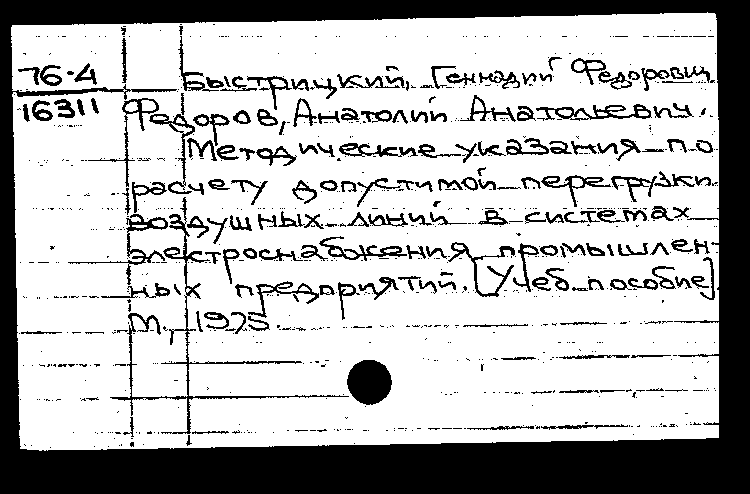 76-4
16311
Быстрицкий, Геннадий Федорович
Федоров, Анатолий Анатольевич.
Методические указания по
расчету допустимой перегрузки
воздушных линий в системах
электроснабжения промышлен-
ных предприятий. [Учеб. пособие]
М., 1975.